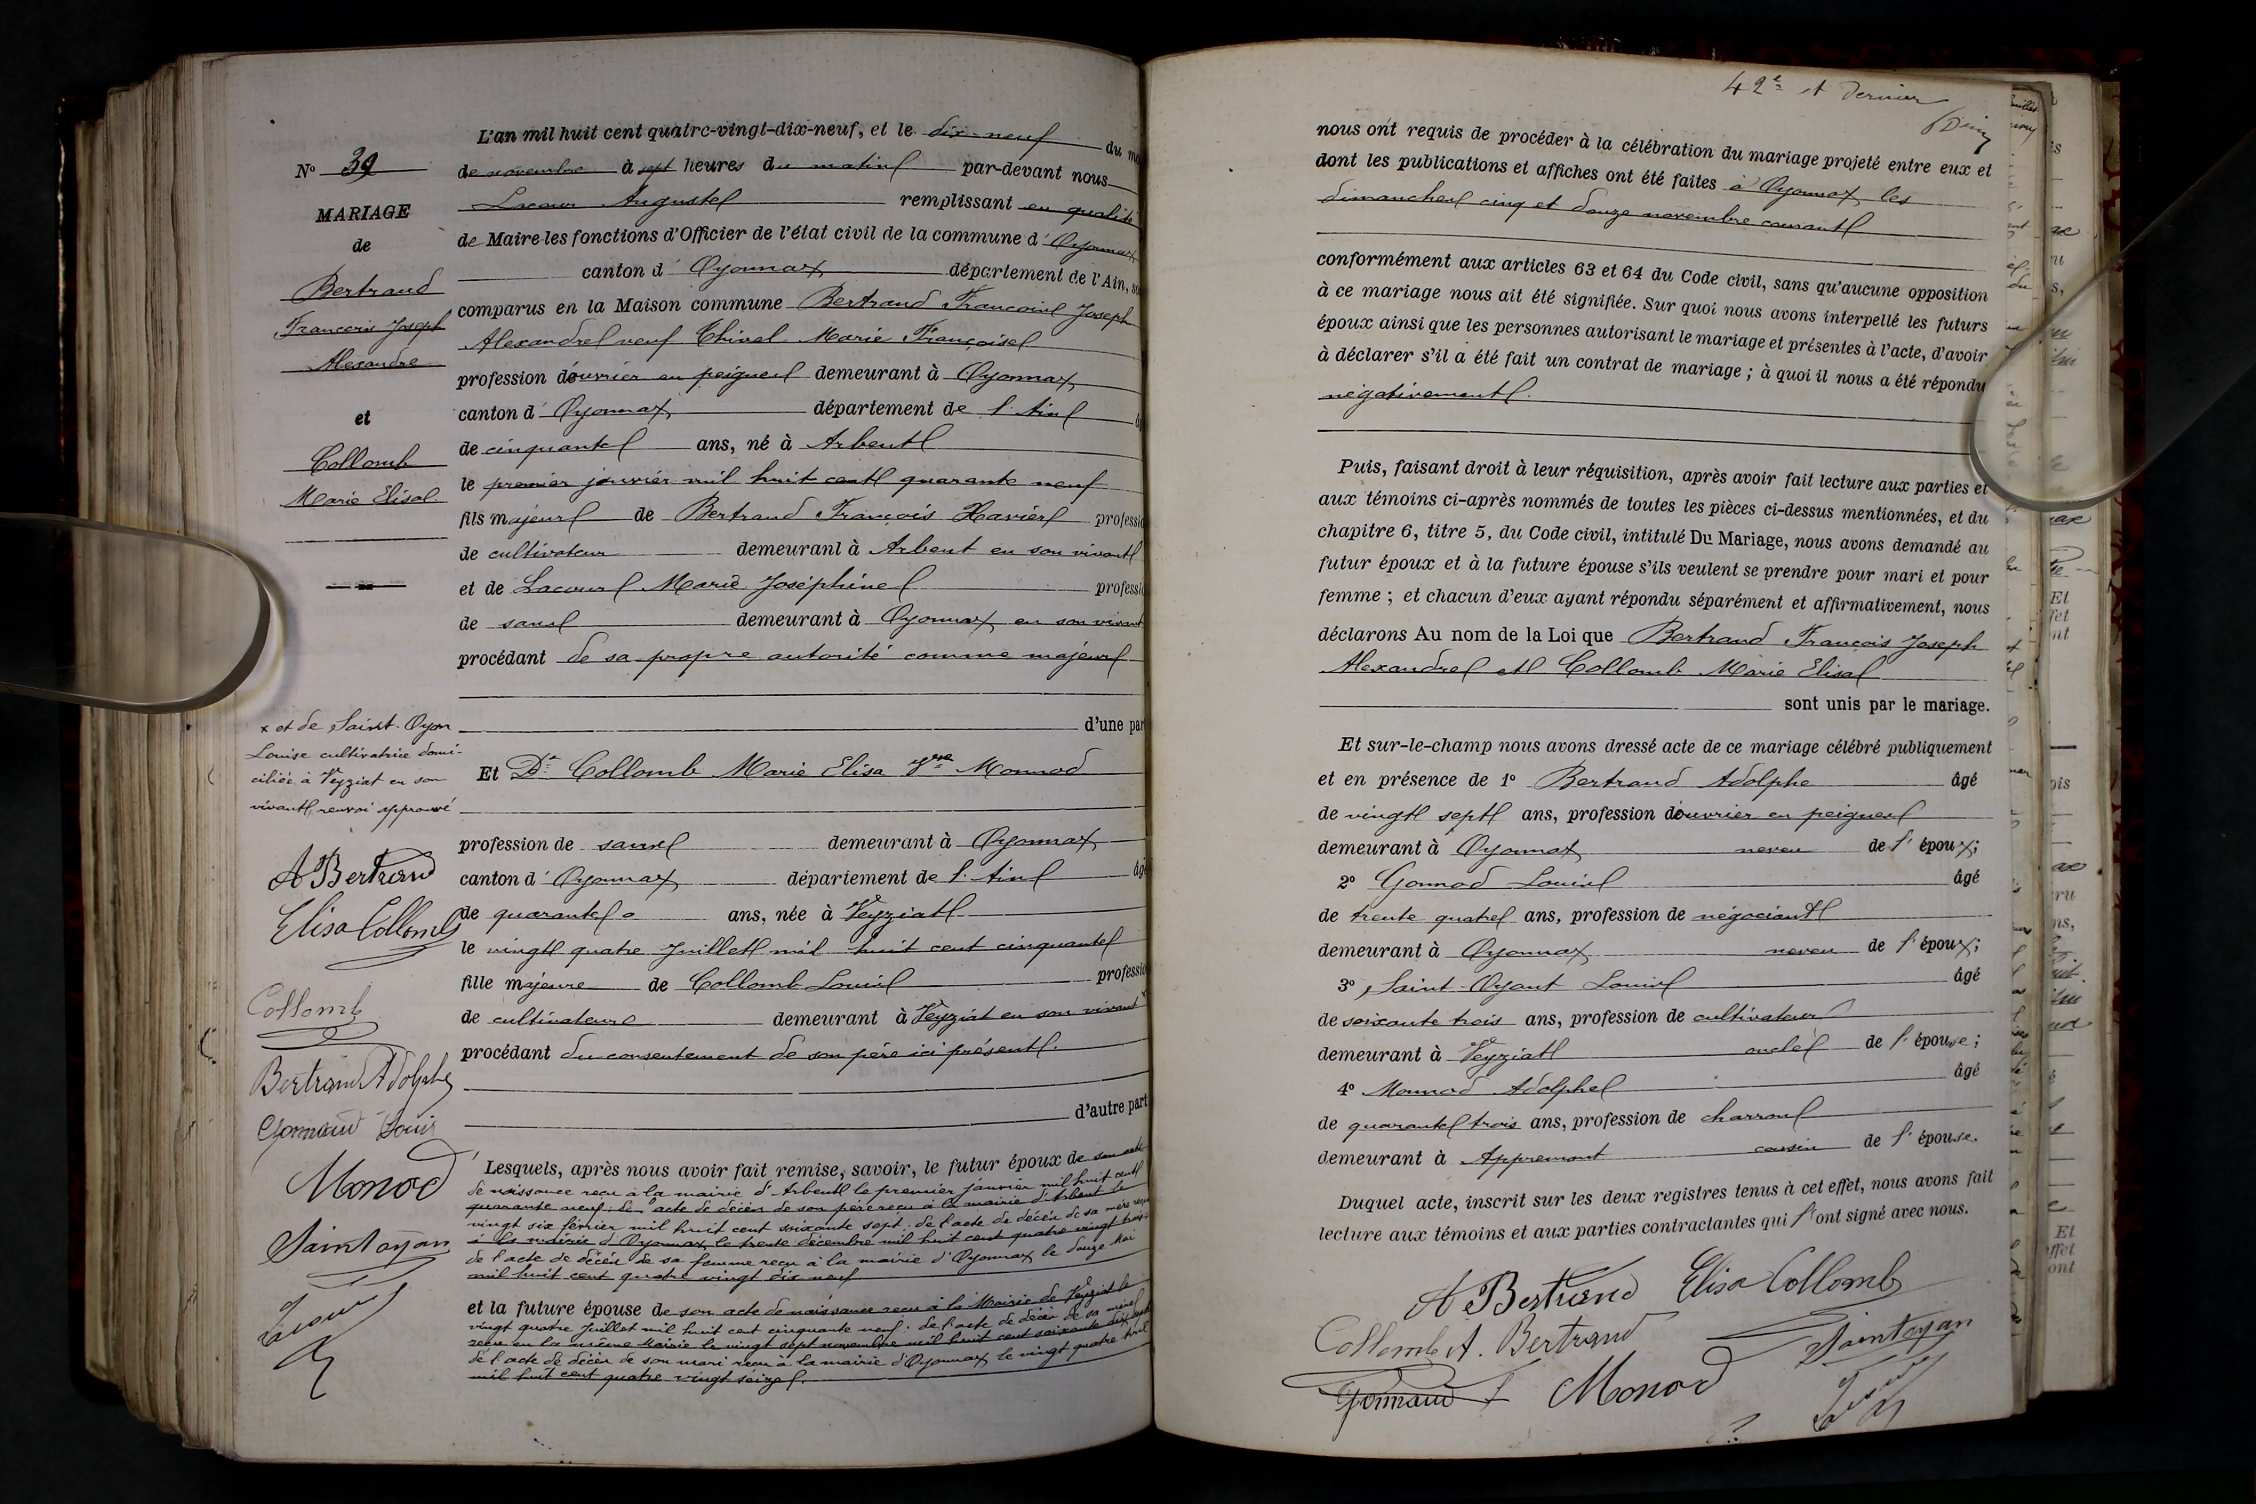 N° 39
MARIAGE
de
Bertrand
François Joseph
Alexandre
et
Collomb
Marie Elisa
x et de Saint-Oyan
Louise cultivatrice domi-
ciliée à Veyziat en son
vivant, renvoi approuvé
A Bertrand
Elisa Collomb
Collomb
Bertrand Adolphe
Gonnaud Louis
Monod
Saintoyan
L'an mil huit cent quatre-vingt-dix-neuf, et le dix-neuf du m
de novembre à sept heures du matin par-devant nous
Lacour Auguste remplissant en qualité
de Maire les fonctions d'Officier de l'état civil de la commune d'Oyonnax
canton d'Oyonnax département de l'Ain,
comparus en la Maison commune Bertrand François Joseph
Alexandre veuf Marie Françoise
profession d'ouvrier en peignes demeurant à Oyonnax
canton d'Oyonnax département de l'Ain
de cinquante ans, né à Arbent
le premier janvier mil huit cent quarante neuf
fils majeur de Bertrand François Xavier professi
de cultivateur demeurant à Arbent en son vivant
et de Lacour Marie Joséphine professi
de sans demeurant à Oyonnax en son vivant
procédant de sa propre autorité comme majeur
d'une par
Et De Collomb Marie Elisa Vve Monnod
profession de sans demeurant à Oyonnax
canton d'Oyonnax département de l'Ain âgé
de quarante ans, née à Veyziat
le vingt quatre Juillet mil huit cent cinquante
fille majeure de Collomb Louis professi
de cultivateur demeurant à Veyziat en son vivant x
procédant du consentement de son père ici présent.
d'autre part
Lesquels, après nous avoir fait remise, savoir, le futur époux de son acte
de naissance reçu à la mairie d'Arbent le premier janvier mil huit cent
quarante neuf; de l'acte de décès de son père reçu à la mairie d'Arbent le
vingt six février mil huit cent soixante sept; de l'acte de décès de sa mère reçu
à la mairie d'Oyonnax le trente décembre mil huit cent quatre vingt trois
de l'acte de décès de sa femme reçu à la mairie d'Oyonnax le douze Mai
mil huit cent quatre vingt dix neuf
et la future épouse de son acte de naissance reçu à la Mairie de Veyziat le
vingt quatre Juillet mil huit cent cinquante neuf; de l'acte de décès de sa mère
reçu en la même Mairie le vingt sept novembre mil huit cent soixante dix
de l'acte de décès de son mari reçu à la mairie d'Oyonnax le vingt quatre
mil huit cent quatre vingt seize.
42e et dernier
nous ont requis de procéder à la célébration du mariage projeté entre eux et
dont les publications et affiches ont été faites à Oyonnax les
dimanches cinq et douze novembre courant
conformément aux articles 63 et 64 du Code civil, sans qu'aucune opposition
à ce mariage nous ait été signifiée. Sur quoi nous avons interpellé les futurs
époux ainsi que les personnes autorisant le mariage et présentes à l'acte, d'avoir
à déclarer s'il a été fait un contrat de mariage ; à quoi il nous a été répondu
négativement.
Puis, faisant droit à leur réquisition, après avoir fait lecture aux parties et
aux témoins ci-après nommés de toutes les pièces ci-dessus mentionnées, et du
chapitre 6, titre 5, du Code civil, intitulé Du Mariage, nous avons demandé au
futur époux et à la future épouse s'ils veulent se prendre pour mari et pour
femme ; et chacun d'eux ayant répondu séparément et affirmativement, nous
déclarons Au nom de la Loi que Bertrand François Joseph
Alexandre et Collomb Marie Elisa
sont unis par le mariage.
Et sur-le-champ nous avons dressé acte de ce mariage célébré publiquement
et en présence de 1° Bertrand Adolphe âgé
de vingt sept ans, profession d'ouvrier en peignes
demeurant à Oyonnax neveu de l'époux;
2° Gonnod Louis âgé
de trente quatre ans, profession de négociant
demeurant à Oyonnax neveu de l'époux;
3° Saint-Oyant Louis âgé
de soixante trois ans, profession de cultivateur
demeurant à Veyziat oncle de l'épouse;
4° Monnod Adolphe âgé
de quarante trois ans, profession de charron
demeurant à Appremont cousin de l'épouse.
Duquel acte, inscrit sur les deux registres tenus à cet effet, nous avons fait
lecture aux témoins et aux parties contractantes qui l'ont signé avec nous.
A Bertrand Elisa Collomb
Collomb A. Bertrand Saintoyan
Gonnaud Monod